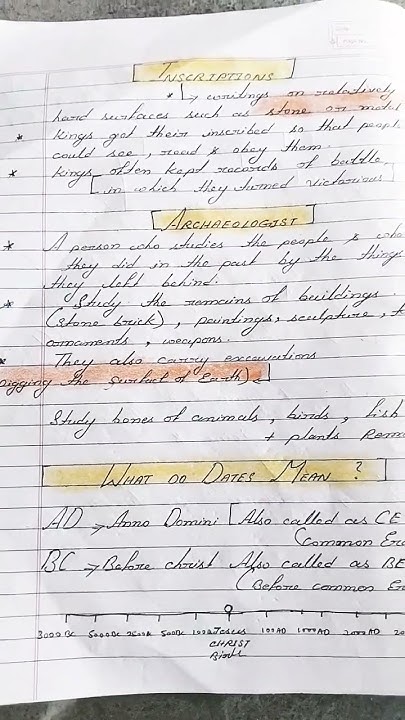 INSCRIPTIONS
* → writings on relatively
hard surfaces such as stone or metal
* Kings got their inscribed so that peopl
could see, read & obey them.
* Kings often kept records of battle
in which they turned victorious
ARCHAEOLOGIST
* A person who studies the people & wha
they did in the past by the things
they left behind.
* Study the remains of buildings
(stone brick), paintings, sculpture, t
ornaments, weapons.
* They also carry excavations
Digging the surfact of Earth)
Study bones of animals, birds, fish
+ plants Rem
WHAT DO DATES MEAN ?
AD → Anno Domini [Also called as CE
(Common Era
BC → Before christ Also called as BE
(Before common Er
3000 BC 5000BC 2500BC 500BC 100 Jesus 100AD 1000AD 2000AD 20
CHRIST
Birth